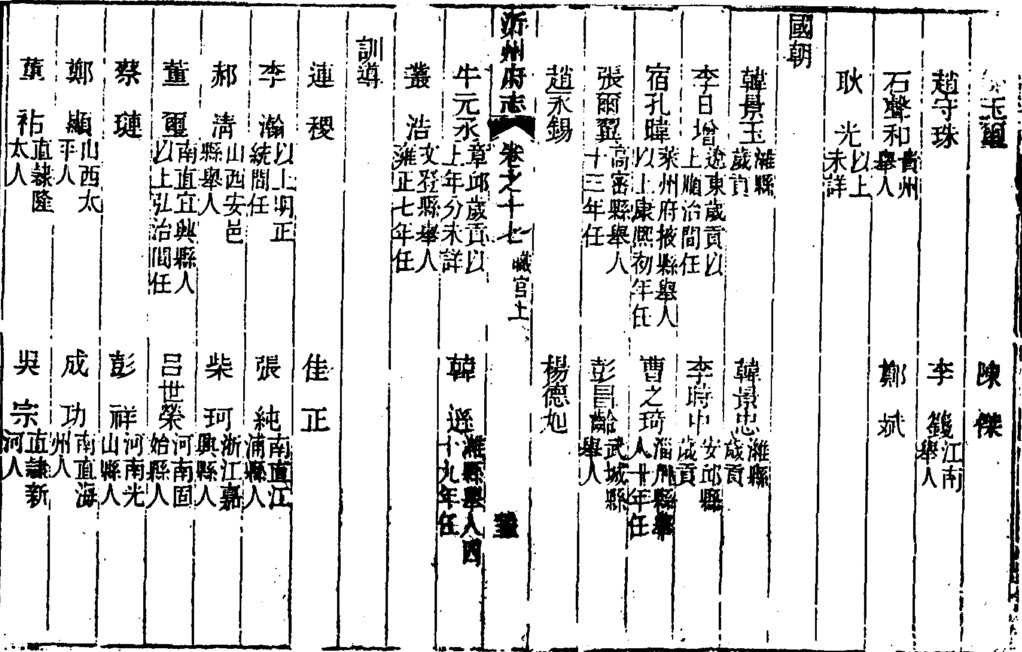 陳傑
趙守珠
李籛江南舉人
石聲和青州舉人
鄭斌
耿光以上未詳
國朝
韓景玉濰縣歲貢
韓景忠濰縣歲貢
李日增遼東歲貢以上順治間任
李時中安邱縣歲貢
宿孔暐萊州府掖縣舉人以上康熙初年任
曹之琦淄川縣舉人十年任
張爾翼高密縣舉人十三年任
彭昌齡武城縣舉人
趙永錫
楊德
沂州府志
卷之十七
職官上
牛元永章邱歲貢以上年分未詳
韓遜濰縣舉人四十九年任
叢浩文登縣舉人雍正七年任
訓導
連稷
佳正
李瀚以上明正統間任
張純南直江浦縣人
郝清山西安邑縣舉人
柴珂浙江嘉興縣人
董璽南直宜興縣人以上弘治間任
呂世榮河南固始縣人
蔡璉
彭祥河南光山縣人
鄭顯山西太平人
成功南直海州人
董祐直隸隆太人
吳宗直隸新河人